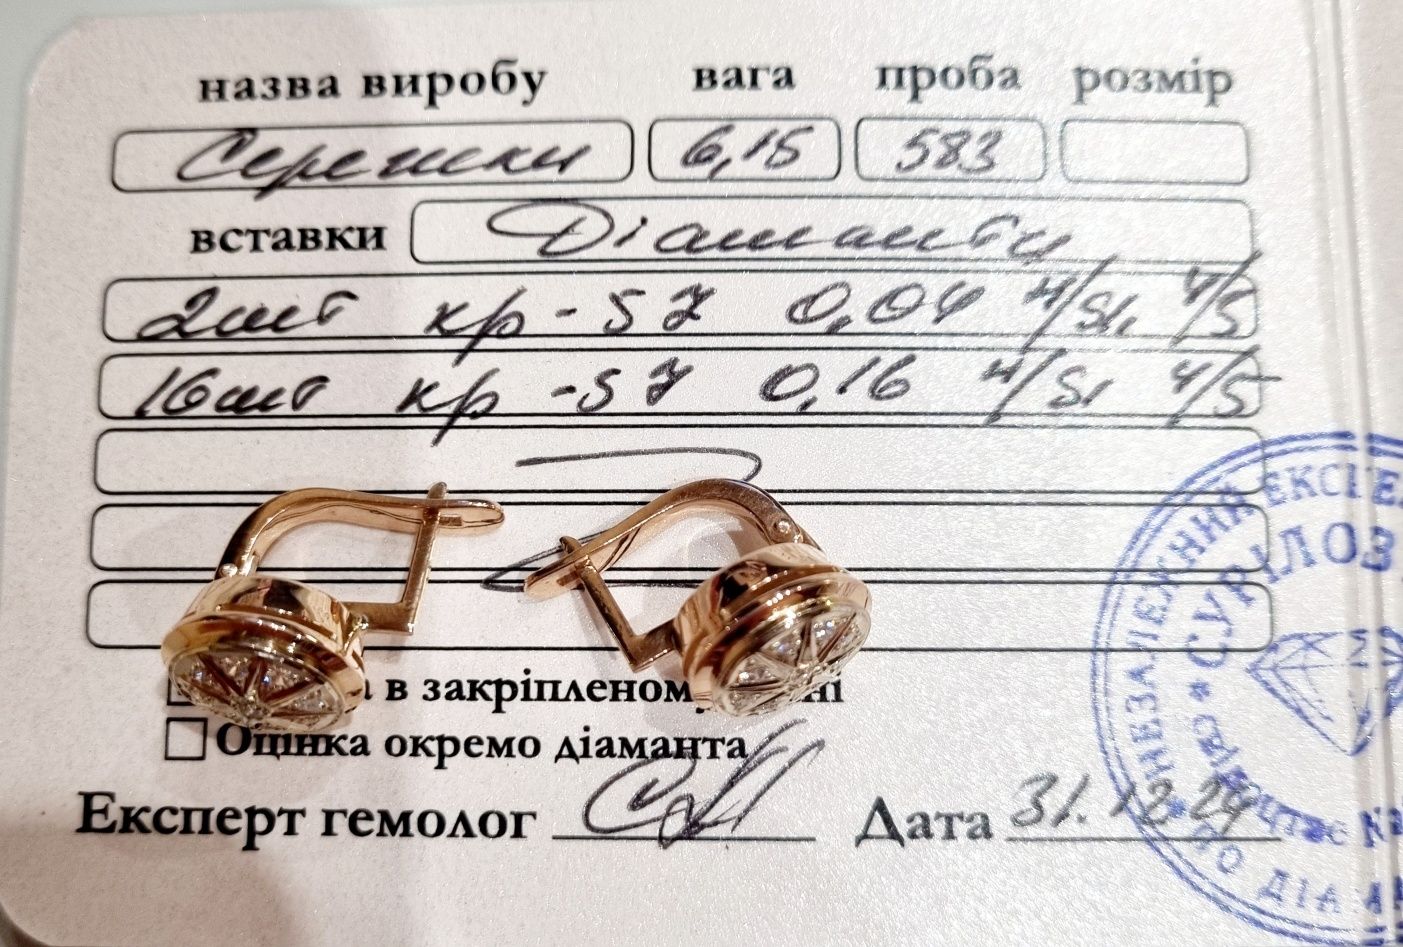 назва виробу вага проба розмір
Сережки 6,15 583
вставки Діаманти
2шт кр-57 0,04 H/SI, 4/5
16шт кр-57 0,16 H/SI 4/5
в закріпленому
Оцінка окремо діаманта
Експерт гемолог Дата 31.12.24
НЕЗАЛЕЖНИЙ ЕКСПЕ
СУРІЛОВ
ПО ДІАМ